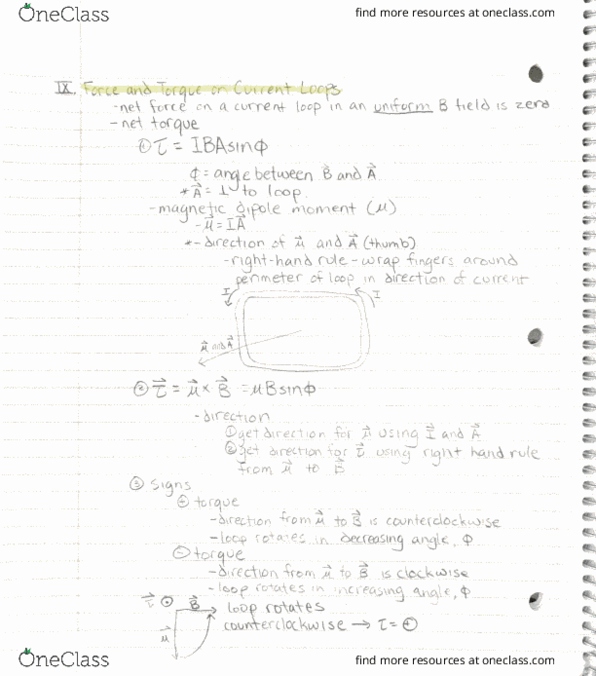 OneClass
find more resources at oneclass.com
IX. Force and Torque on Current Loops
-net force on a current loop in an uniform B field is zero
-net torque
① τ = IBAsinϕ
ϕ = angle between B⃗ and A⃗
*A⃗ = ⊥ to loop
-magnetic dipole moment (μ)
-μ⃗ = IA⃗
*-direction of μ⃗ and A⃗ (thumb)
-right-hand rule - wrap fingers around
perimeter of loop in direction of current
I I
μ⃗ and A⃗
② τ⃗ = μ⃗ × B⃗ = μBsinϕ
-direction
①get direction for μ⃗ using I⃗ and A⃗
②get direction for τ⃗ using right hand rule
from μ⃗ to B⃗
③ Signs
⊕ torque
-direction from μ⃗ to B⃗ is counterclockwise
-loop rotates in decreasing angle, ϕ
⊖ torque
-direction from μ⃗ to B⃗ is clockwise
-loop rotates in increasing angle, ϕ
τ⃗ ⊙ B⃗ loop rotates
μ⃗ counterclockwise → τ = ⊕
OneClass
find more resources at oneclass.com